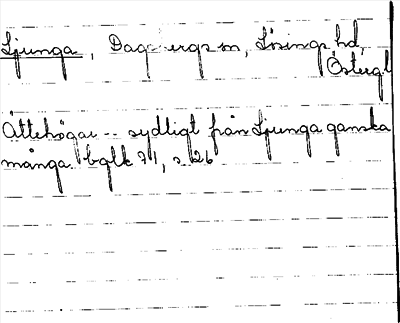 Ljunga, Dagsbergs sn, Lösings hd,
Östergtl
Ättehögar -- sydligt från Ljunga ganska
många bglk 71, s. 26